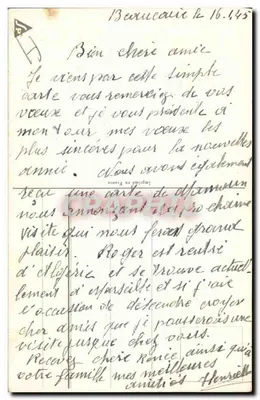 Beaucaire le 16.1.45
Bien chère amie
Je viens par cette simple
carte vous remercier de vos
vœux et je vous présente à
mon tour mes vœux les
plus sincères pour la nouvelle
année. Nous avons également
reçu une carte de
nous annonçant sa prochaine
visite qui nous fera grand
plaisir. Roger est rentré
d'Algérie et se trouve actuel
lement d' et si j'ai
l'occasion de descendre croyez
cher amies que je pousserais une
visite jusque chez vous.
Recevez chère Renée ainsi que
votre famille mes meilleures
amitiés Henriette
Imprimé en France